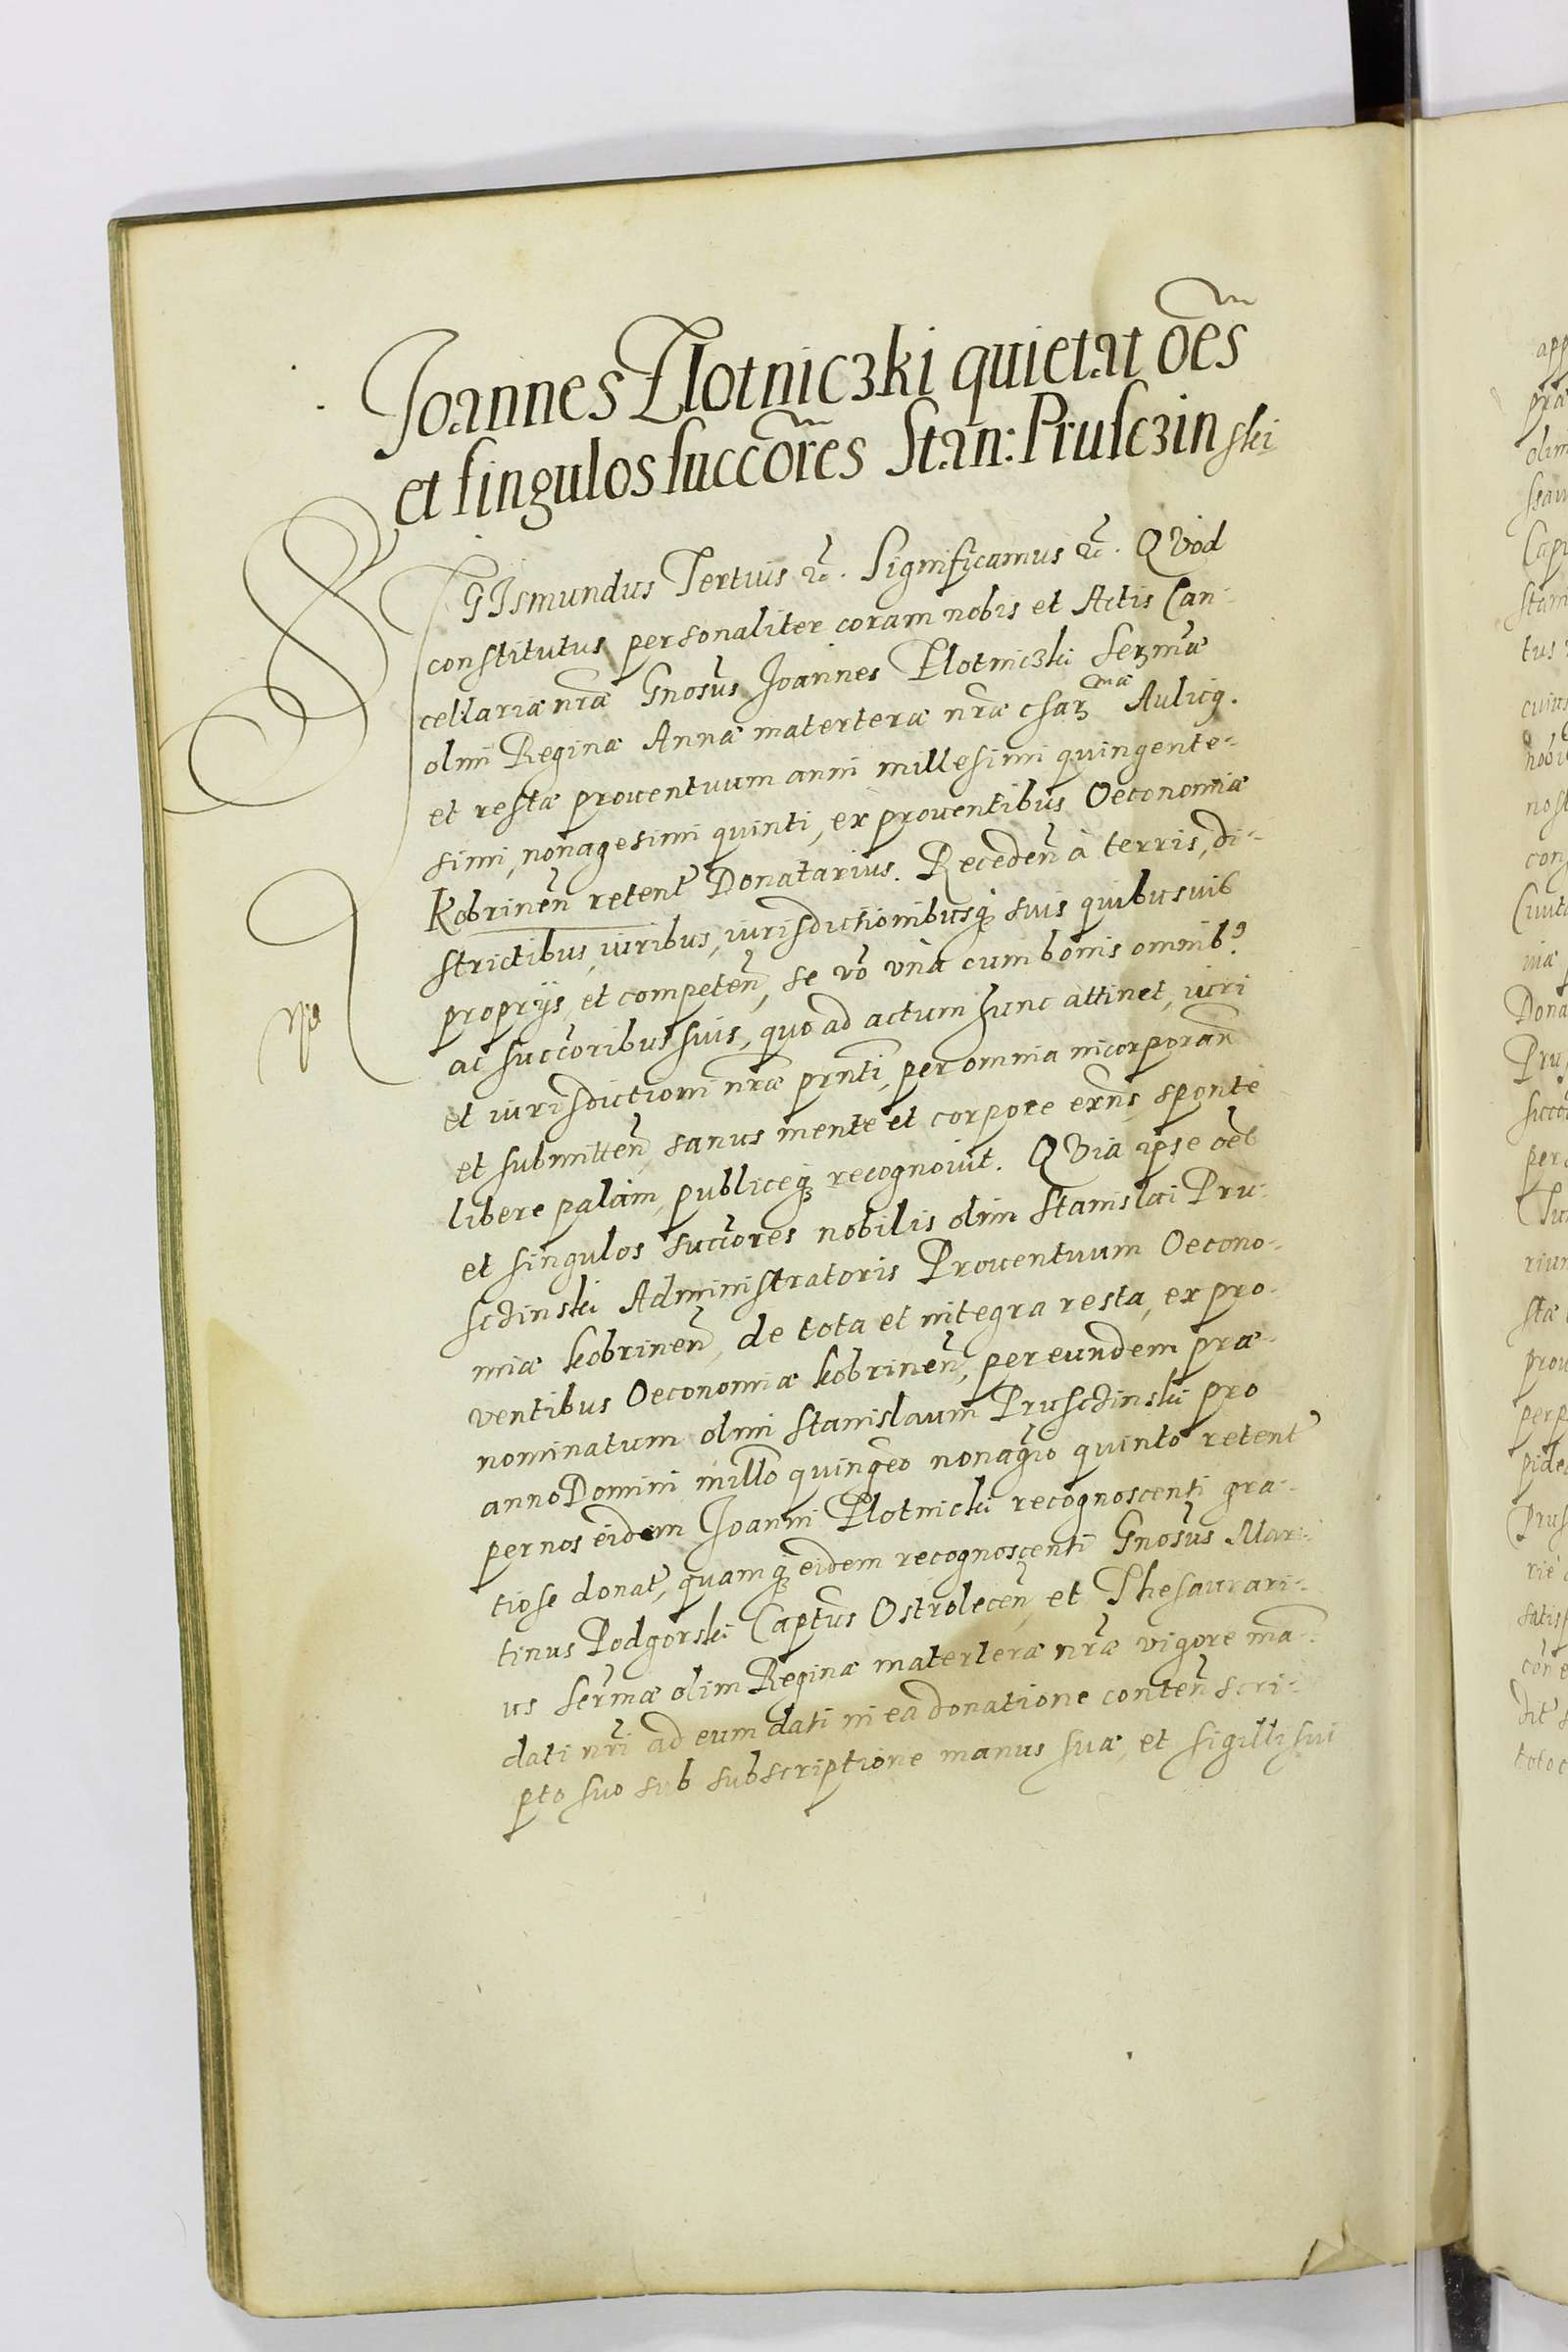 Joannes Plotniczki quietat oẽs
et singulos succõres Stan: Prusczinski
SIGIsmundus Tertius etc. Significamus etc. QVod
constitutus personaliter coram nobis et Actis Can-
cellariæ nr̃æ Gnosus Joannes Plotniczki Sermæ
olim Reginæ Annæ materteræ nr̃æ charmæ Aulicq.
et restæ prouentuum anni millesimi quingente-
simi, nonagesimi quinti, ex prouentibus Oeconomiæ
Kobrineñ retent Donatarius. Recedeñ à terris, di-
strictibus, iuribus, iurisdictionibusq suis quibusuis
proprijs, et competeñ, se vo vnà cum bonis omnib9
ac succoribus suis, quo ad actum hunc attinet, iuri
et iurisdictioni nr̃æ prnti, per omnia incorporañ
et submitteñ, sanus mente et corpore exñs, sponte
libere palàm, publiceq recognouit. QVia ipse oẽs
et singulos succores nobilis olim Stanislai Pru-
sczinski Administratoris Prouentuum Oecono-
miæ Kobrineñ, de tota et integra resta, ex pro-
ventibus Oeconomiæ Kobrineñ, per eundem præ-
nominatum olim Stanislaum Prusczinski pro
anno Domini millo quingeo nonagio quinto retent
per nos eidem Joanni Plotnicki recognoscenti gra-
tiose donat, quamq eidem recognoscenti Gnosus Mar-
tinus Podgorski Captus Ostroleceñ et Thesaurari-
us Sermæ olim Reginæ materteræ nr̃æ vigore mã-
dati nr̃i ad eum dati in ea donatione conteñ scri-
pto suo sub subscriptione manus suæ, et sigilli sui